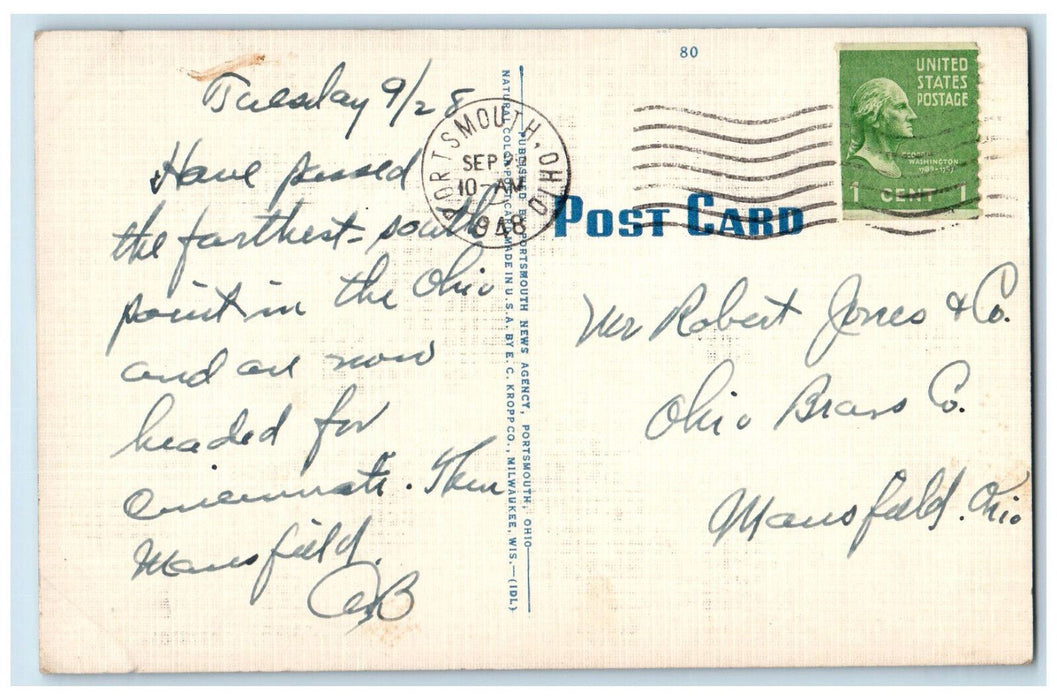 80
Tuesday 9/28
Have passed
the farthest-south
point in the Ohio
and are now
headed for
Cincinnati. Then
Mansfield.
PORTSMOUTH, OHIO
SEP
10-AM
1948
NATURAL COLOR POST CARD MADE IN U.S.A. BY E. C. KROPP CO., MILWAUKEE, WIS.—(IDL)
PUBLISHED BY PORTSMOUTH NEWS AGENCY, PORTSMOUTH, OHIO
UNITED
STATES
POSTAGE
GEORGE
WASHINGTON
1789-1797
1 CENT 1
POST CARD
Mr Robert Jones & Co.
Ohio Brass Co.
Mansfield. Ohio